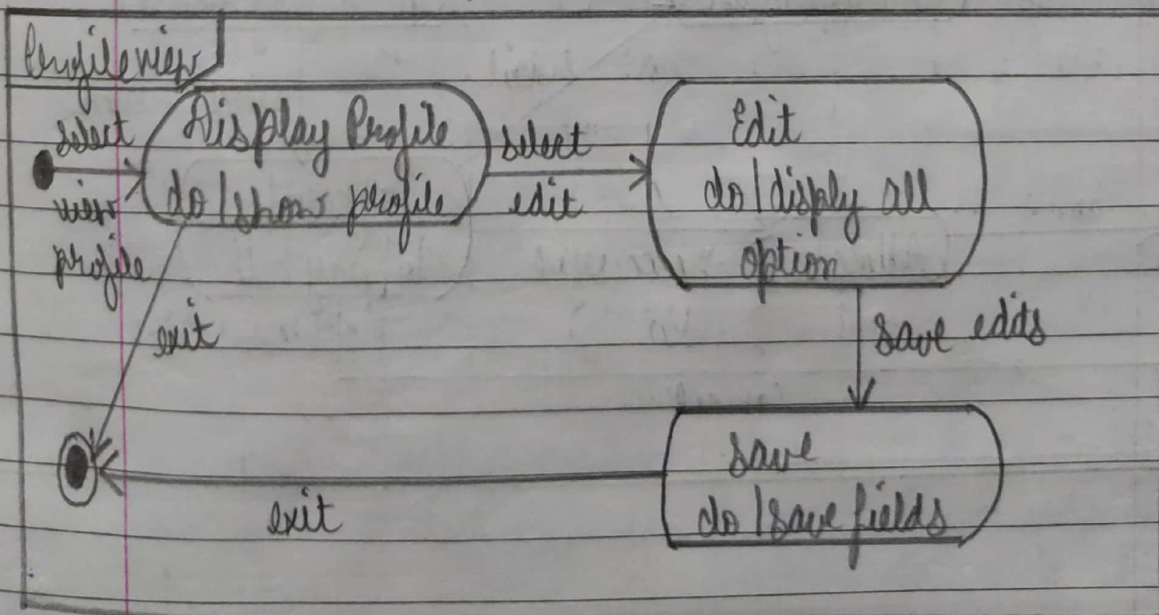 Profileview
select
view
profile
Display Profile
do/show profile
select
edit
Edit
do/disply all
option
exit
save edds
save
do/save fields
exit